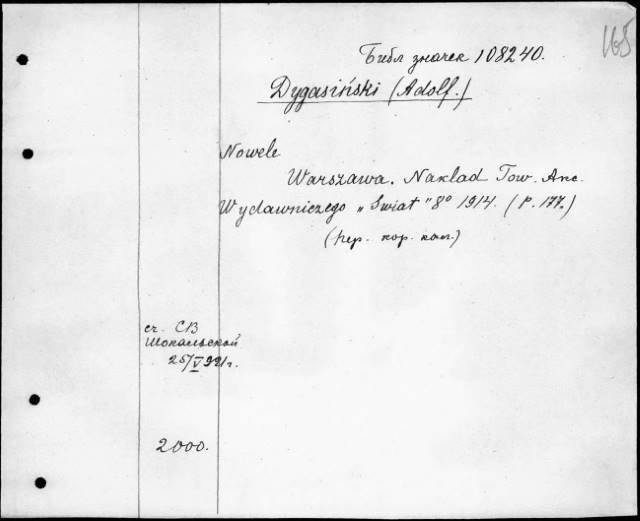 165
Библ значек 108240.
Dygasiński (Adolf.)
Nowele
Warszawa. Nakład Tow. Anc.
Wydawniczego „Świat" 8° 1914. (P. 177.)
(пер. кор. кол.)
сч. СВ
Шокальской
25/V 921г.
2000.